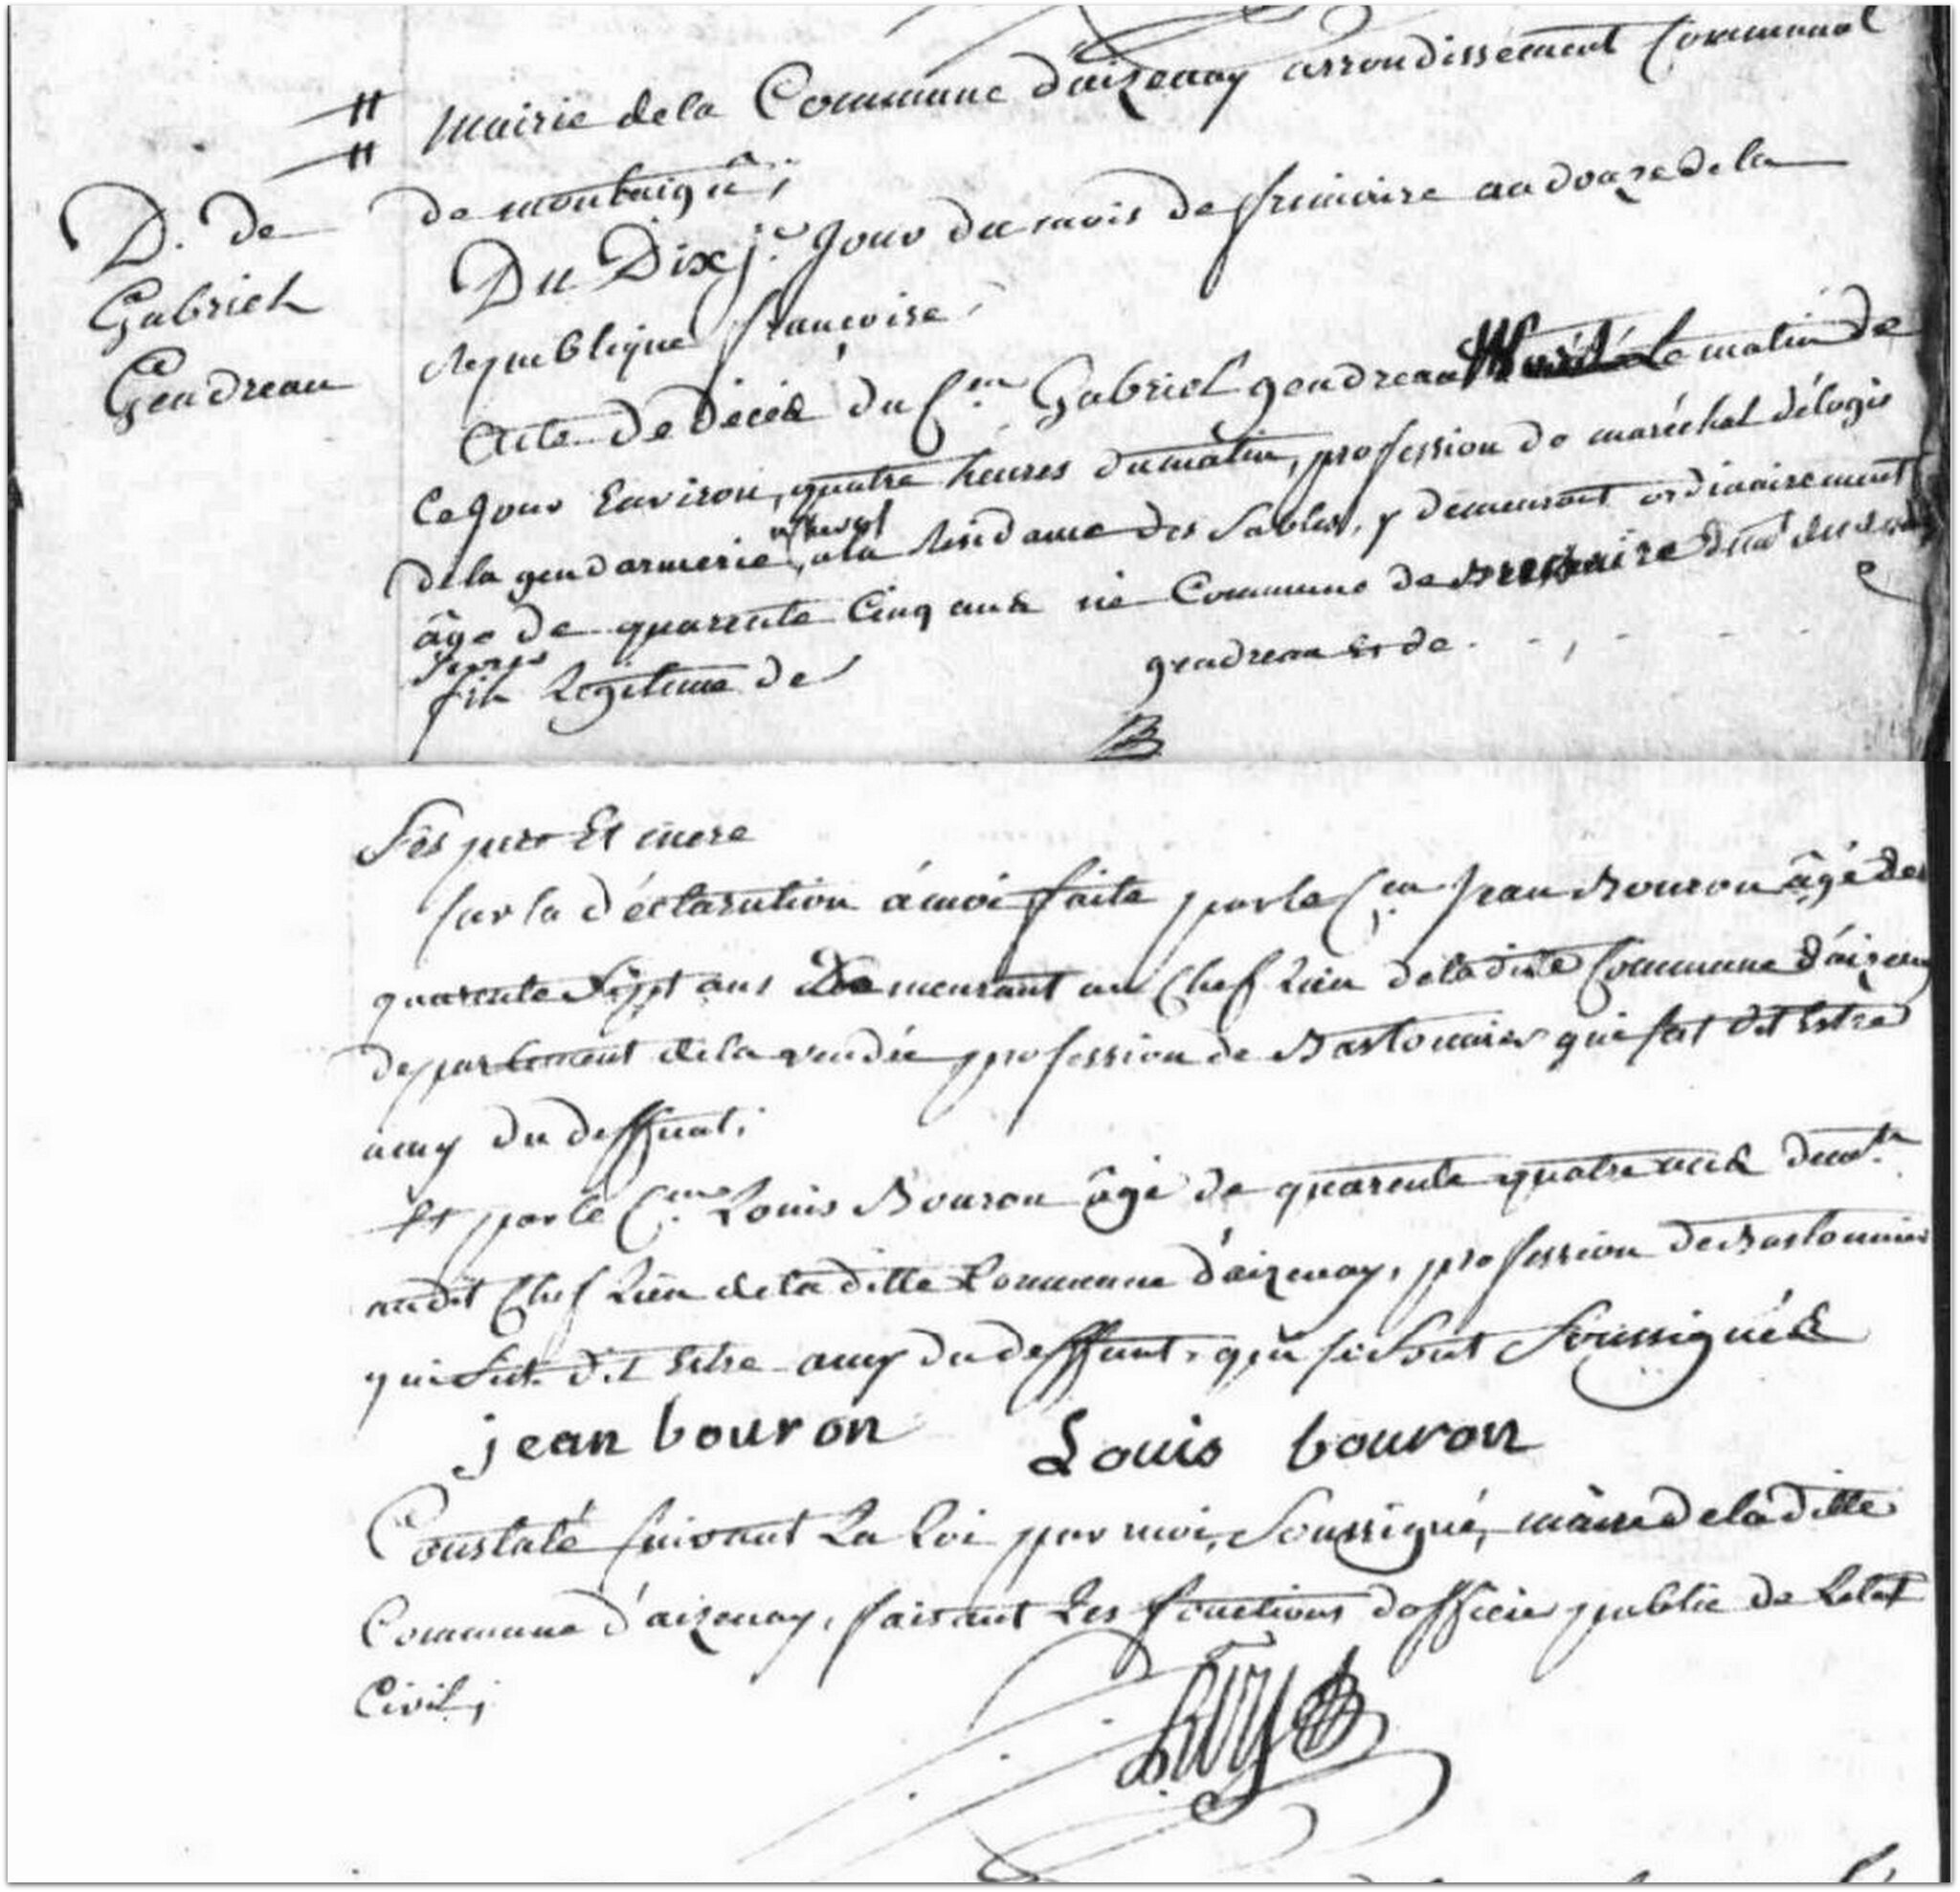 D. de
Gabriel
Gendreau
Mairie dela Commune d'aizenay arrondissement Communal
de montaigu,
Du Dixe. Jour du mois de frimaire an douze de la
republique françoise
Acte de Décéd du Cen. Gabriel gendreau le matin de
Ce Jour Environ, quatre heures du matin, profession de maréchal délogis
dela gendarmerie, ala Residance des Sables, y demeurant ordinairement
âgé de quarente Cinq ans né Commune de Bressuire
sevres
fils Legitime de gendreau et de
Ses pere Et mere
sur la déclaration à moi faite par le Cen. Jean Bouron âgé de
quarente Sept ans Demeurant au Chef Lieu dela dite Commune d'aizenay
departement dela vendée profession de Bastonnier qui sest dit Estre
amy du deffunt;
Et par le Cen. Louis Bouron âgé de quarente quatre ans demt.
audit Chef Lieu dela ditte Commune d'aizenay, profession de Bastonnier
qui sest dit Estre amy du deffunt, qui se sont Soussignés
jean bouron Louis bouron
Constaté suivant La Loi par moi, Soussigné, maire dela ditte
Commune d'aizenay, faisant Les fonctions dofficier public de Letat
Civil;